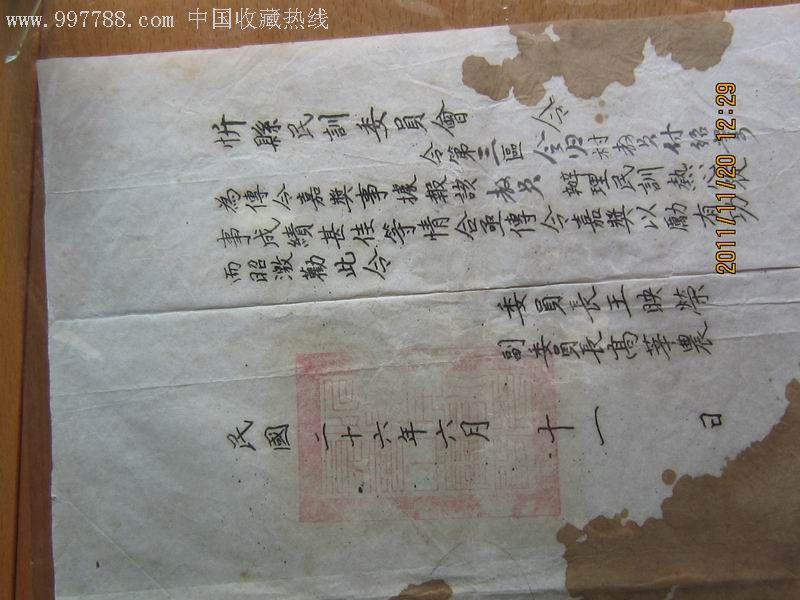 www.997788.com 中国收藏热线
忻縣民訓委員會 令
令第三區 村村长付紹
為傳令嘉獎事據報該村长辦理民訓熱
事成績甚佳等情合亟傳令嘉獎以勵有功
而昭激勸此令
委員長王映榮
副委員長高華農
民國二十六年六月十一日
2011/11/20 12:29